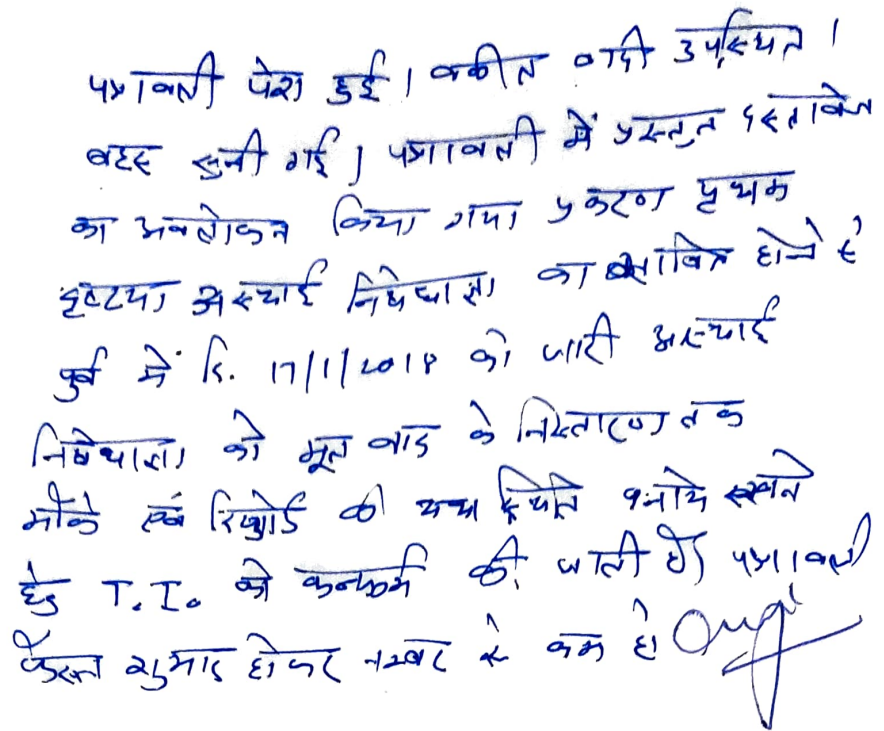 पत्रावली पेश हुई। वकील वादी उपस्थित।
बहस सुनी गई। पत्रावली में प्रस्तुत दस्तावेज
का अवलोकन किया गया प्रकरण प्रथम
दृष्टया अस्थाई निषेधाज्ञा का होने से
पुर्व में दि. 17/1/2018 को जारी अस्थाई
निषेधाज्ञा को मूल वाद के निस्तारण तक
मौके एवं रिकॉर्ड की यथा स्थिति बनाये रखने
हेतु T.I. को कन्फर्म की जाती है। पत्रावली
फैसल शुमार होकर नम्बर से कम हो